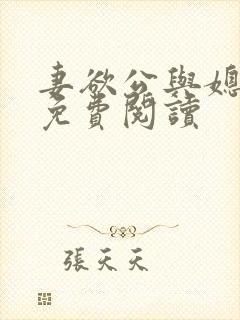 妻欲公與媳
免費閱讀
張天天